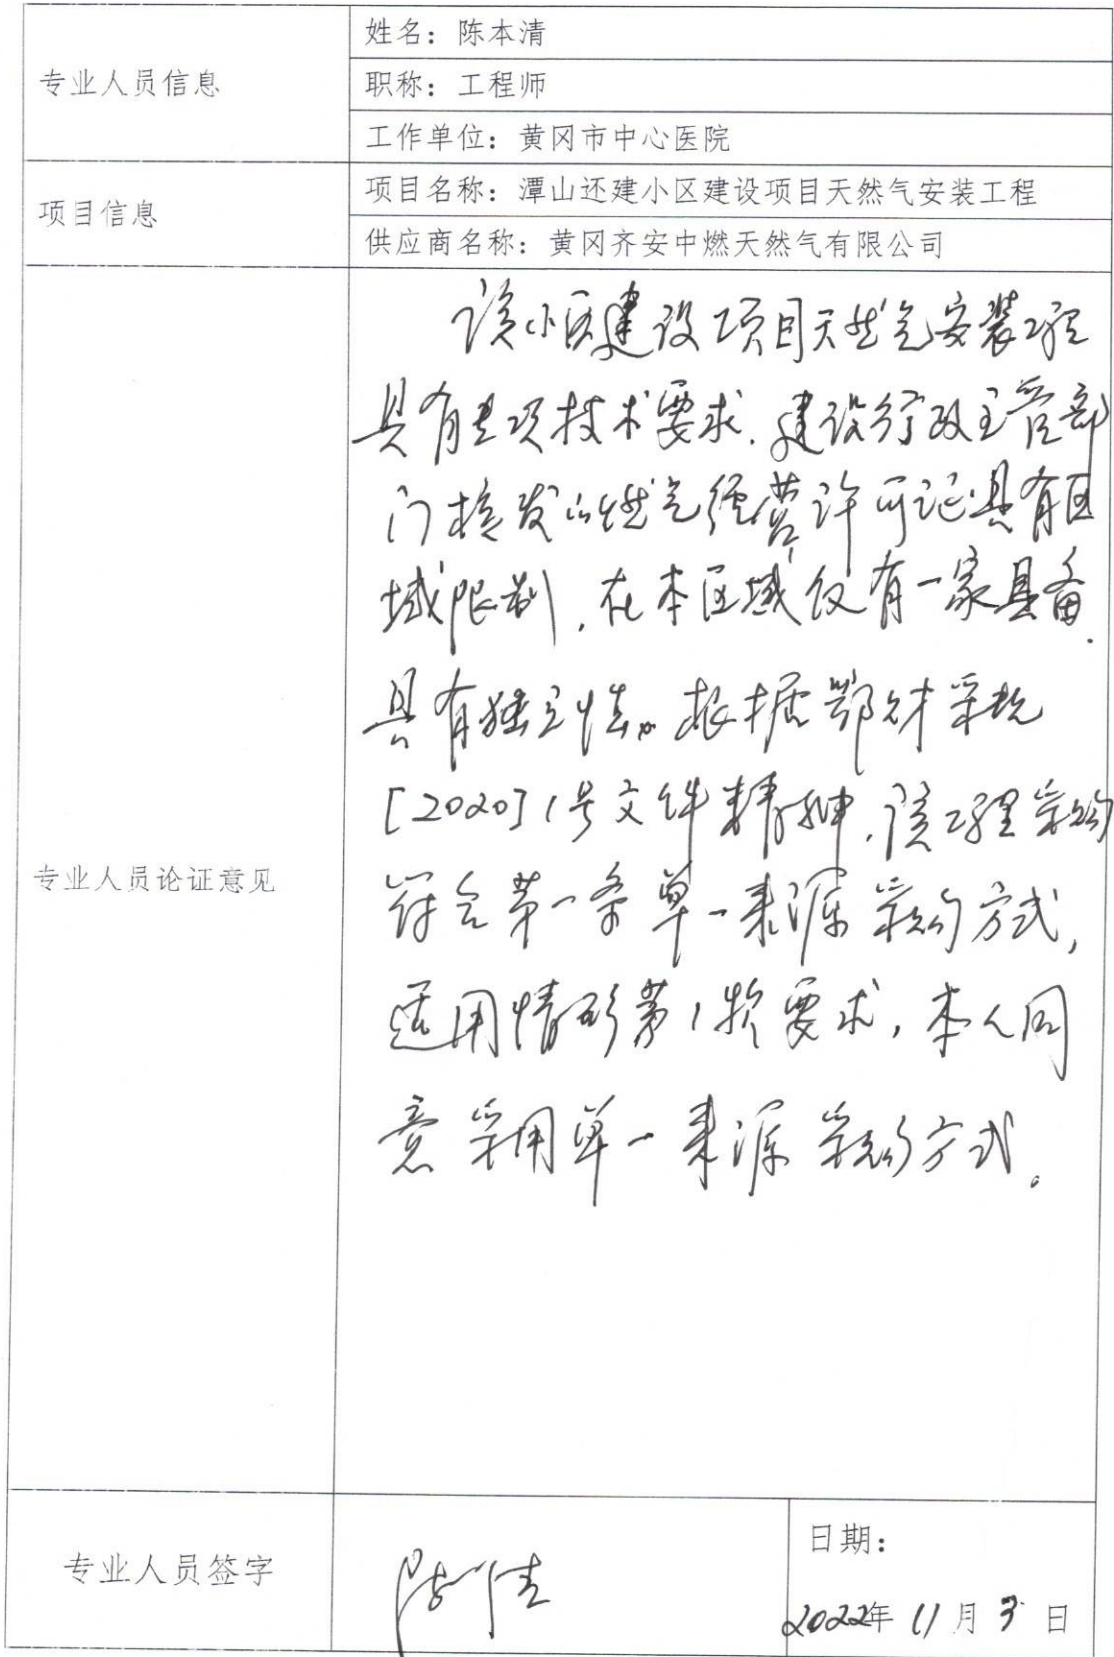 专业人员信息
姓名：陈本清
职称：工程师
工作单位：黄冈市中心医院
项目信息
项目名称：潭山还建小区建设项目天然气安装工程
供应商名称：黄冈齐安中燃天然气有限公司
专业人员论证意见
该小区建设项目天然气安装工程
具有专项技术要求，建设行政主管部
门核发的燃气经营许可证具有区
域限制，在本区域仅有一家具备，
具有独立性。根据鄂财采规
[2020]1号文件精神，该工程采购
符合第一条单一来源采购方式，
适用情形第1款要求，本人同
意采用单一来源采购方式。
专业人员签字
陈本清
日期：
2022年11月3日